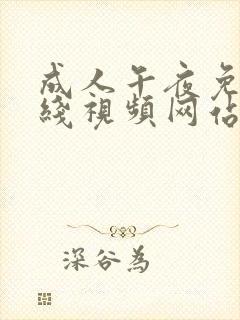 成人午夜免
綫視頻网佔
深谷為